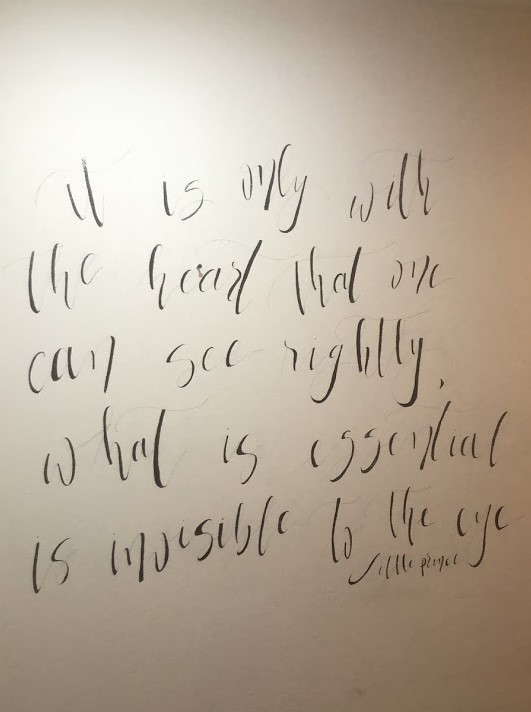 it is only with
the heart that one
can see rightly,
what is essential
is invisible to the eye
little prince